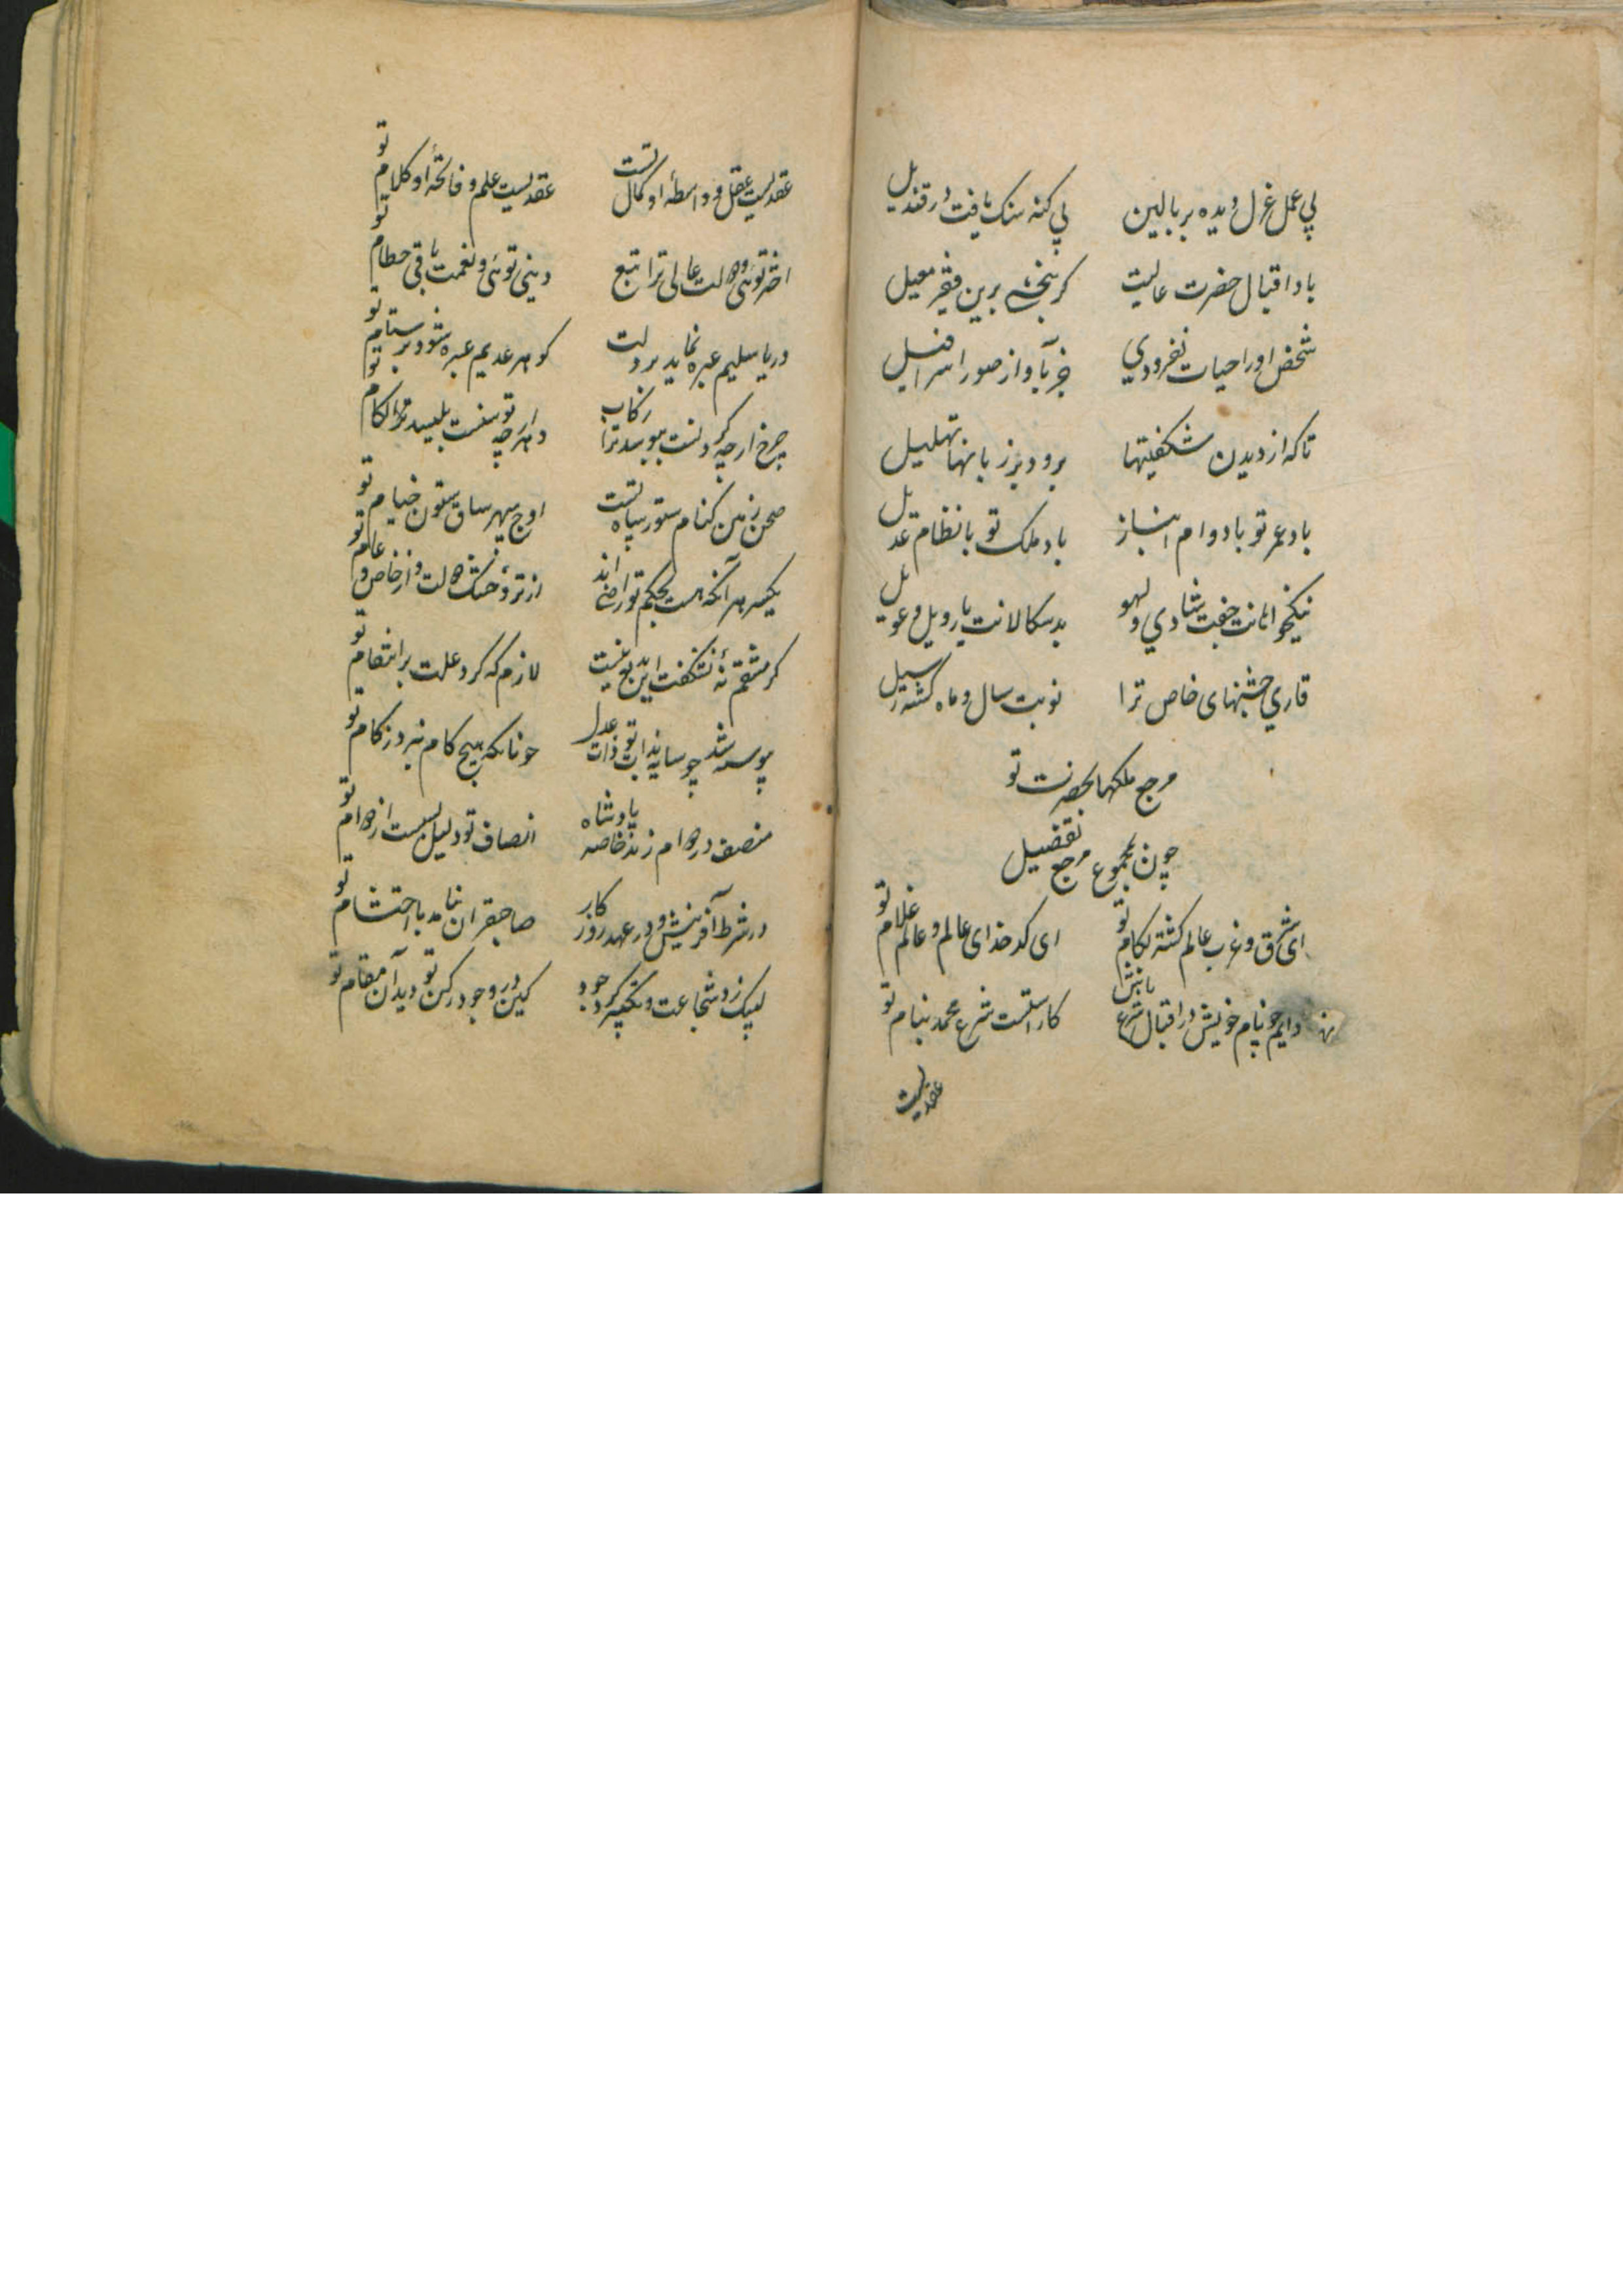 بی عمل غزل دیده بر بالین بی کنه سنک یافت در قندیل
باد اقبال حضرت عالیت کر بنخشد برین فقیر معیل
شخص او را حیات نفزودی جز بآواز صور اسرافیل
تا که از دیدن شکفتیها برود بر زبانها تهلیل
باد عمر تو با دوام انباز باد ملک تو با نظام عدیل
نیکخواهانت جفت شادی و لهو بدسکالانت یار ویل و عویل
قاری جشنهای خاص ترا نوبت سال و ماه کشته رسیل
مرجع ملکها بحضرت تو
چون بمجموع مرجع تفضیل
ای شرق و غرب عالم کشته بکام تو ای کدخدای عالم و عالم غلام تو
دایم چو نام خویش در اقبال شرع باش کاراستست شرع محمد بنام تو
عقدیست
عقدیست عقل و واسطه او کمال تست عقدیست علم و فاتحه او کلام تو
اختر توئی و دولت عالی ترا تبع دینی توئی و نعمت باقی حطام تو
دریا سلیم عبره نماید بر دلت کوهر عدیم عبره شود بر ستام تو
چرخ ار چه کرد نست ببوسد ترا رکاب دهر ار چه توسنست بلیسد ترا لکام
صحن زمین کنام ستور سپاه تست اوج سپهر ساق ستون خیام تو
یکسر هر آنکه هست بحکم تو راضی اند از تر و خشک دولت و از خاص و عام تو
کر منتقم نه نشکفت این بدیع نیست لازم که کرد علت بر انتقام تو
پوسته شد چو سایه بذات تو عدل چونانکه هیچ کام نبرد ز کام تو
منصف در دوام زند خاصه پادشاه انصاف تو دلیل بسست از دوام تو
در شرط آفرینش و در عهد روزکار صاحبقران نیامد با احتشام تو
لبیک زد شجاعت و تکبیر کرد جود کین در وجود رکن تو دید آن مقام تو